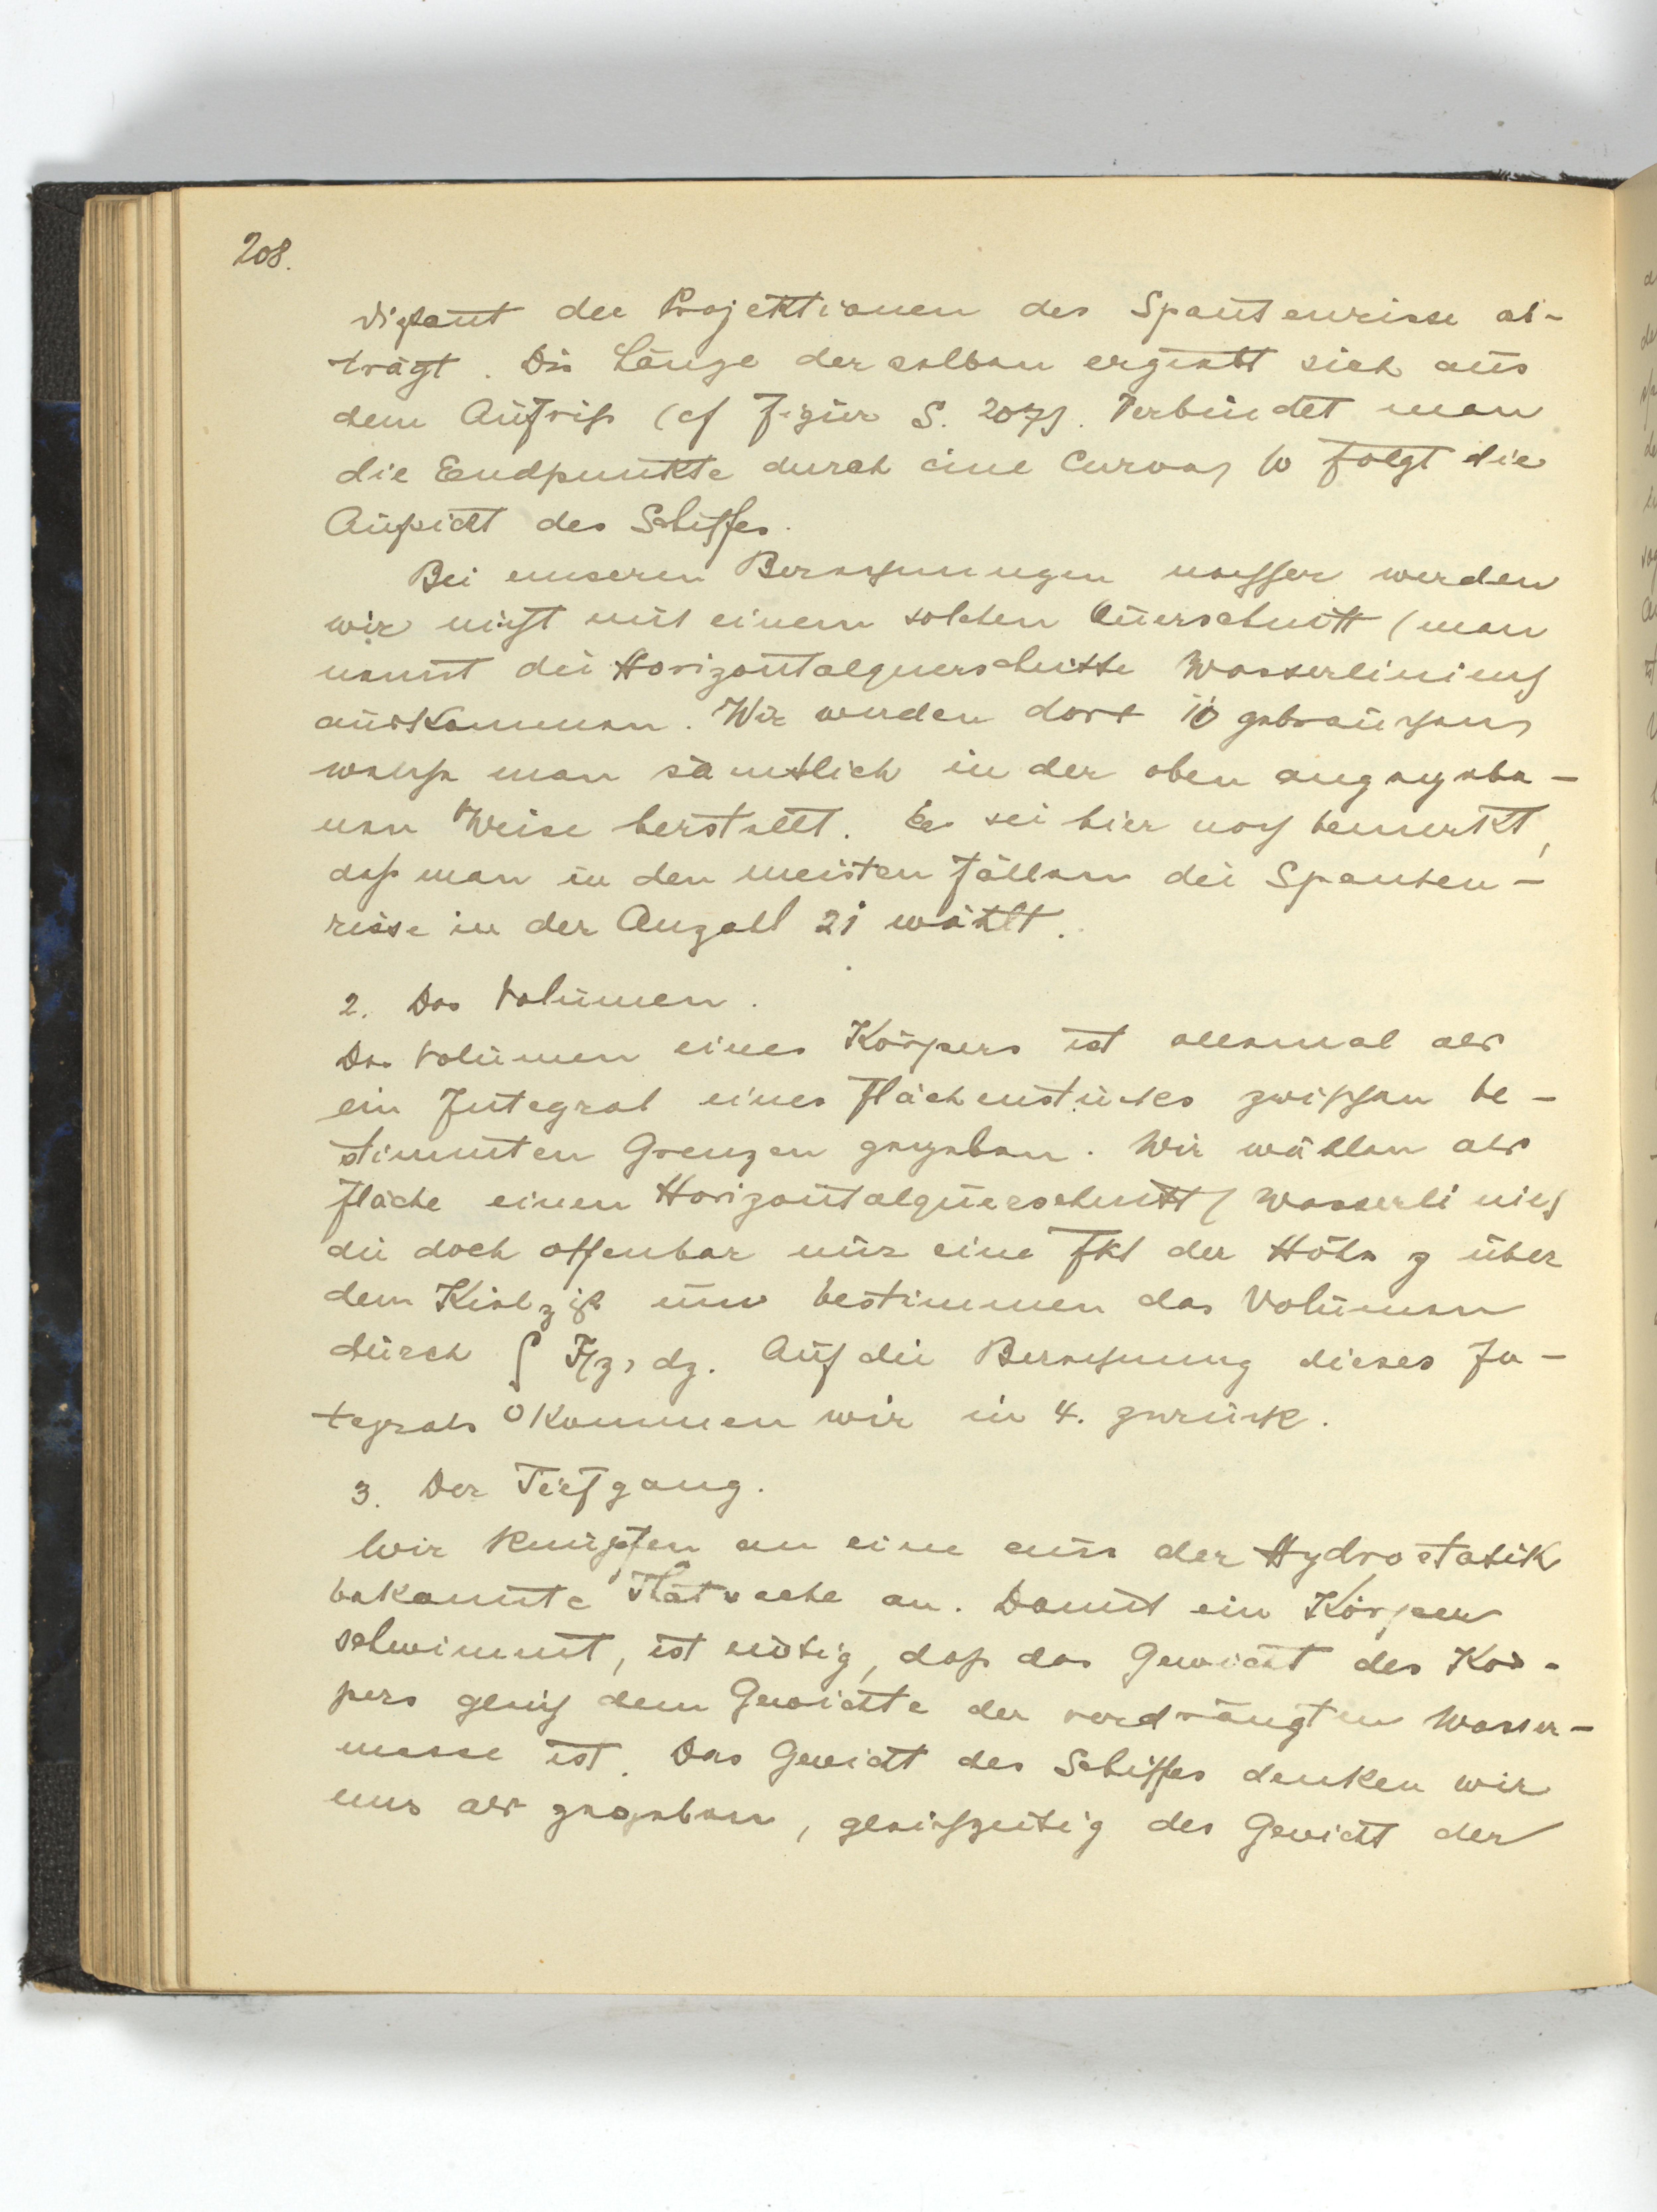 208.
distant der Projektionen des Spantenrisse ab-
trägt. Die Länge derselben ergiebt sich aus
dem Aufriß (cf Figur S. 207). Verbindet man
die Endpunkte durch eine Curve, so folgt die
Aufsicht des Schiffes.
Bei unseren Berechnungen nachher werden
wir nicht mit einem solchen Querschnitt (man
nennt die Horizontalquerschnitte Wasserlinien)
auskommen. Wir werden dort 10 gebrauchen,
welche man sämtlich in der oben angegebe-
nen Weise herstellt. Es sei hier noch bemerkt,
daß man in den meisten Fällen die Spanten-
risse in der Anzahl 21 wählt.
2. Das Volumen.
Das Volumen eines Körpers ist allemal als
ein Integral eines Flächenstückes zwischen be-
stimmten Grenzen gegeben. Wir wählen als
Fläche einen Horizontalquerschnitt (Wasserlinie)
die doch offenbar nur eine Fkt der Höhe z über
dem Kiel z ist und bestimmen das Volumen
durch ∫ F(z) dz. Auf die Berechnung dieses In-
tegrals 0 kommen wir in 4. zurück.
3. Der Tiefgang.
Wir knüpfen an eine aus der Hydrostatik
bekannte Thatsache an. Damit ein Körper
schwimmt, ist nötig, daß das Gewicht des Kör-
pers gleich dem Gewichte der verdrängten Wasser-
masse ist. Das Gewicht des Schiffes denken wir
uns als gegeben, gleichzeitig das Gewicht der